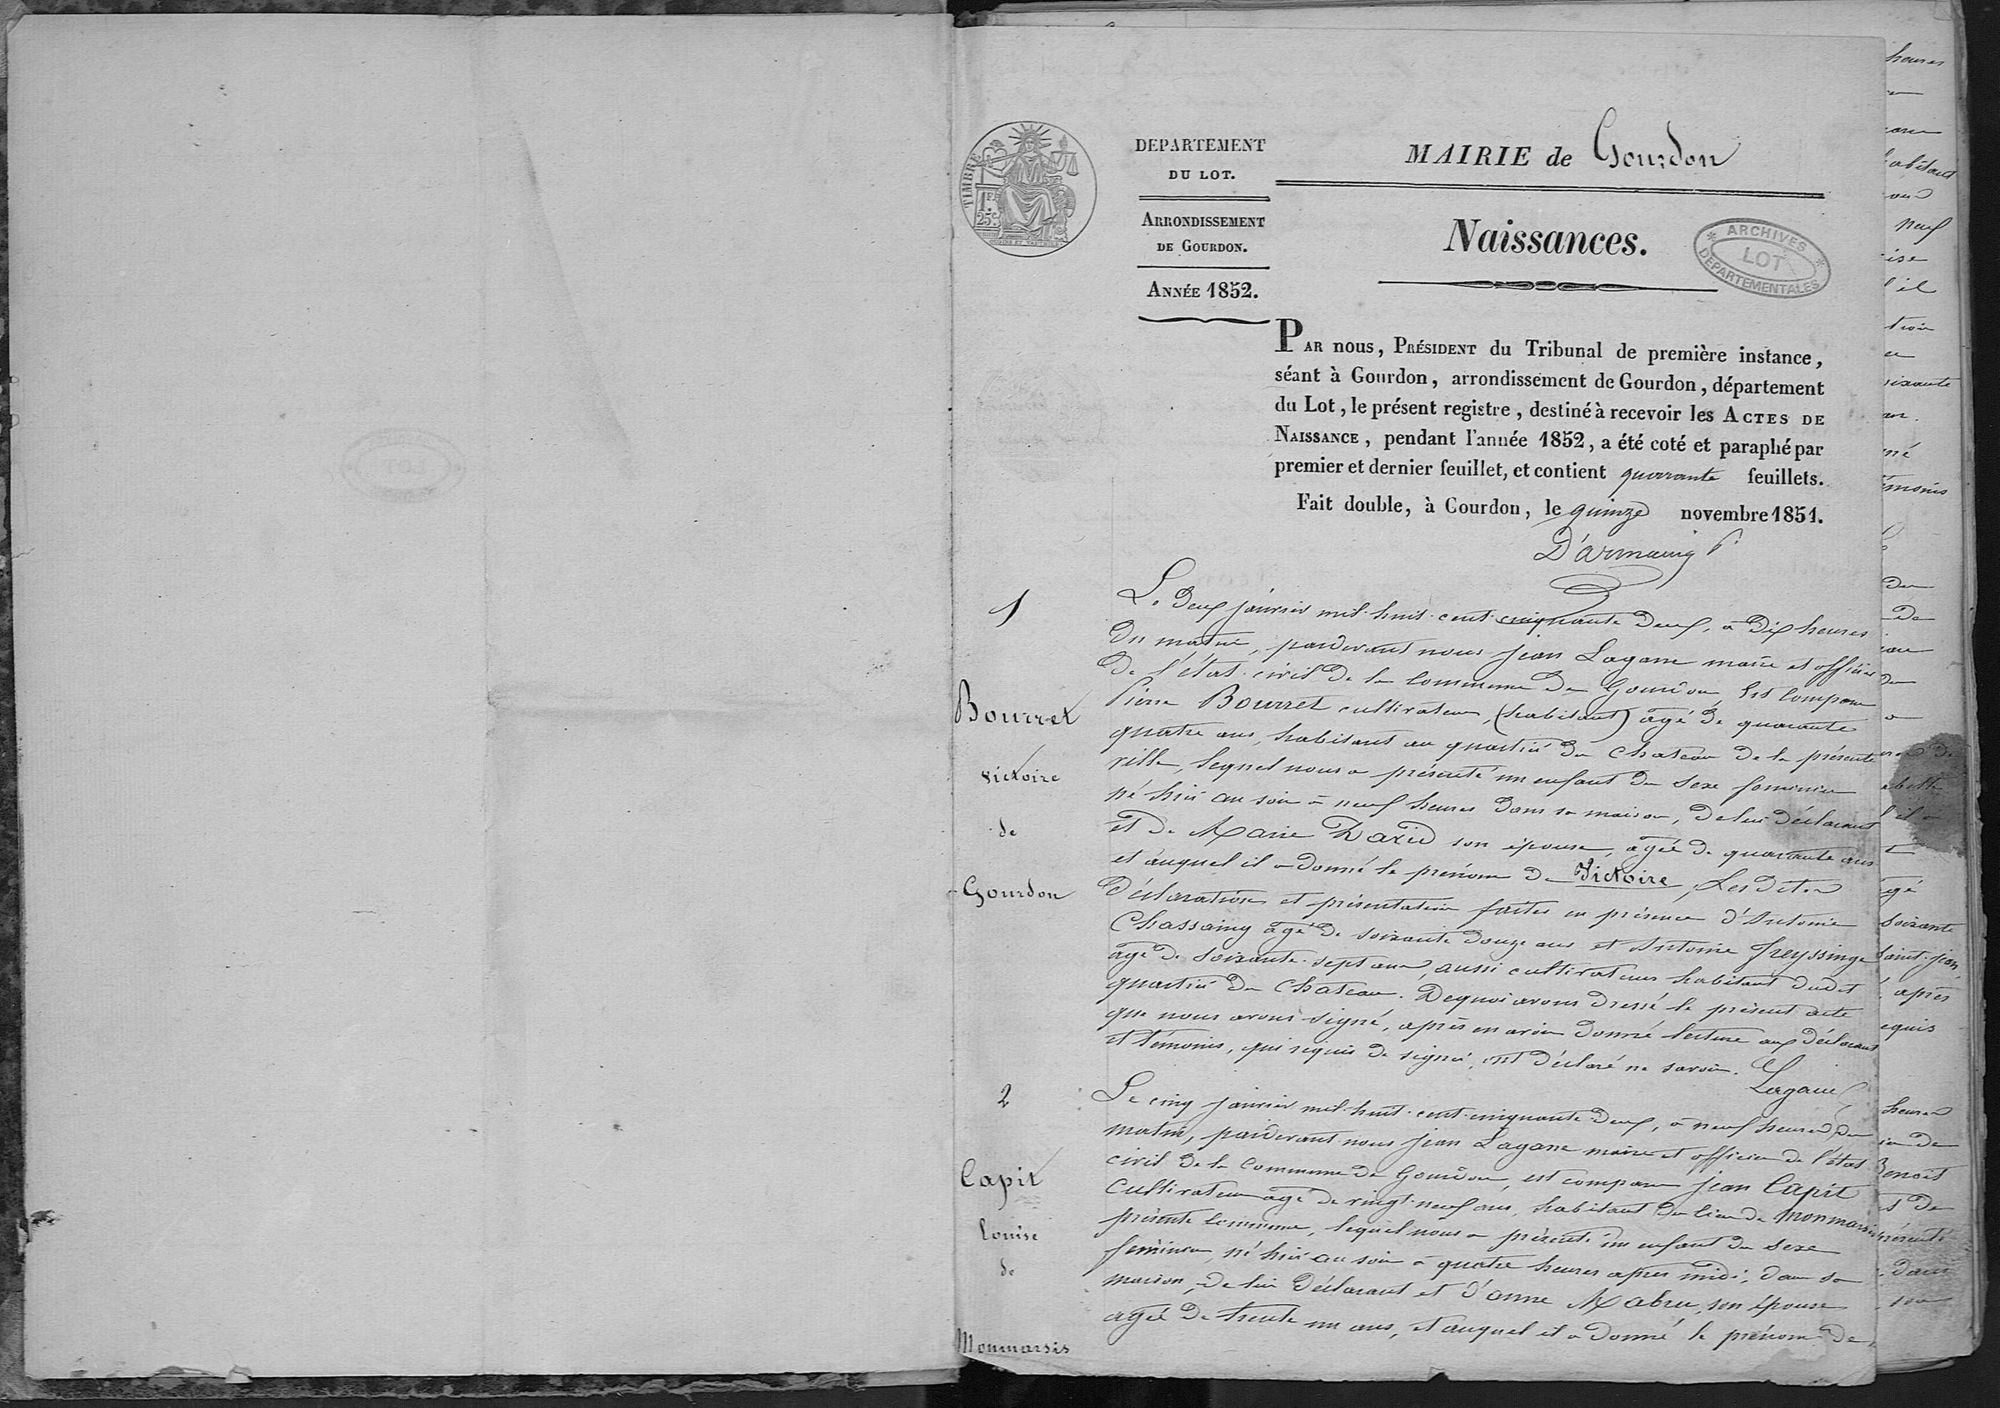 TIMBRE
1 F.
25 C.
DEPARTEMENT
DU LOT.
ARRONDISSEMENT
DE GOURDON.
ANNÉE 1852.
MAIRIE de Gourdon
Naissances.
ARCHIVES
LOT
DEPARTEMENTALES
PAR nous, PRÉSIDENT du Tribunal de première instance,
séant à Gourdon, arrondissement de Gourdon, département
du Lot, le présent registre, destiné à recevoir les ACTES DE
NAISSANCE, pendant l'année 1852, a été coté et paraphé par
premier et dernier feuillet, et contient quarante feuillets.
Fait double, à Gourdon, le quinze novembre 1851.
1
Bourret
Victoire
de
Gourdon
Le deux janvier mil-huit-cent-cinquante deux, à dix heures
du matin, pardevant nous Jean Lagane maire et officier
de l'état-civil de la commune de Gourdon, est comparu
Pierre Bourret cultivateur, (habitant) agé de quarante
quatre ans, habitant au quartier du Chateau de la présente
ville, lequel nous a présenté un enfant du sexe feminin
né hier au soir à neuf heures dans sa maison, de lui déclarant
et de Marie David son épouse, agée de quarante ans
et auquel il a donné le prénom de Victoire, Lesdites
déclaration et présentation faites en présence d'Antoine
Chassaing agé de soixante douze ans et Antoine Freyssinge
agé de soixante-sept ans, aussi cultivateurs habitant dudit
quartier du Chateau. Dequoi avons dressé le présent acte
que nous avons signé, après en avoir donné lecture aux déclarant
et témoins, qui requis de signer, ont déclaré ne savoir.
Lagane
2
Capit
Louise
de
Monmarsis
Le cinq janvier mil-huit-cent-cinquante-deux, à neuf heures du
matin, pardevant nous Jean Lagane maire et officier de l'état
civil de la commune de Gourdon, est comparu Jean Capit
cultivateur agé de vingt-neuf ans, habitant du lieu de Monmarsis
présente commune, lequel nous a présenté un enfant du sexe
feminin, né hier au soir à quatre heures après midi, dans sa
maison, de lui déclarant et d'anne Mabru, son épouse
agée de trente un ans, et auquel il a donné le prénom de